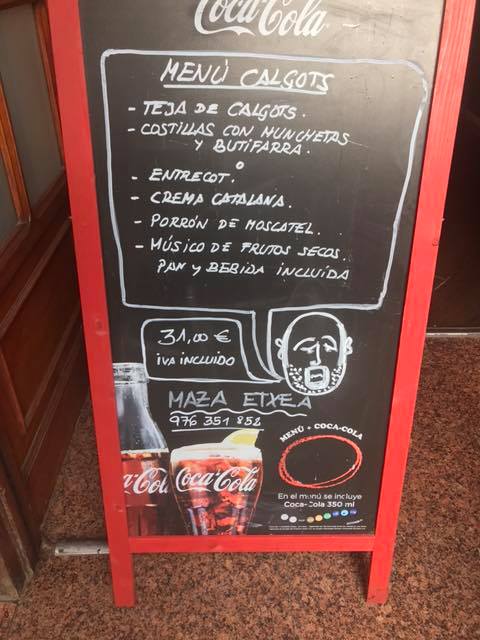 Coca-Cola
MENÚ CALÇOTS
- TEJA DE CALÇOTS.
- COSTILLAS CON MUNCHETAS
Y BUTIFARRA.
O
- ENTRECOT.
- CREMA CATALANA.
- PORRÓN DE MOSCATEL.
- MÚSICO DE FRUTOS SECOS.
PAN Y BEBIDA INCLUIDA
31,00 €
IVA INCLUIDO
MAZA ETXEA
976 351 852
MENÚ + COCA-COLA
Coca-Cola
En el menú se incluye
Coca-Cola 350 ml